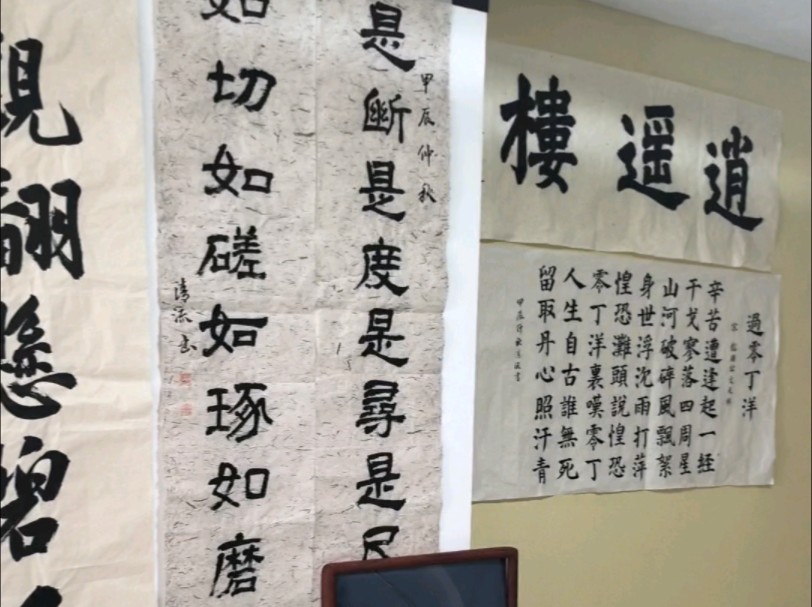 逍遥樓
過零丁洋
辛苦遭逢起一経
干戈寥落四周星
山河破碎風飄絮
身世浮沈雨打萍
惶恐灘頭說惶恐
零丁洋裏嘆零丁
人生自古誰無死
留取丹心照汗青
甲辰仲秋
是斷是度是尋是尺
如切如磋如琢如磨
翻懸碧